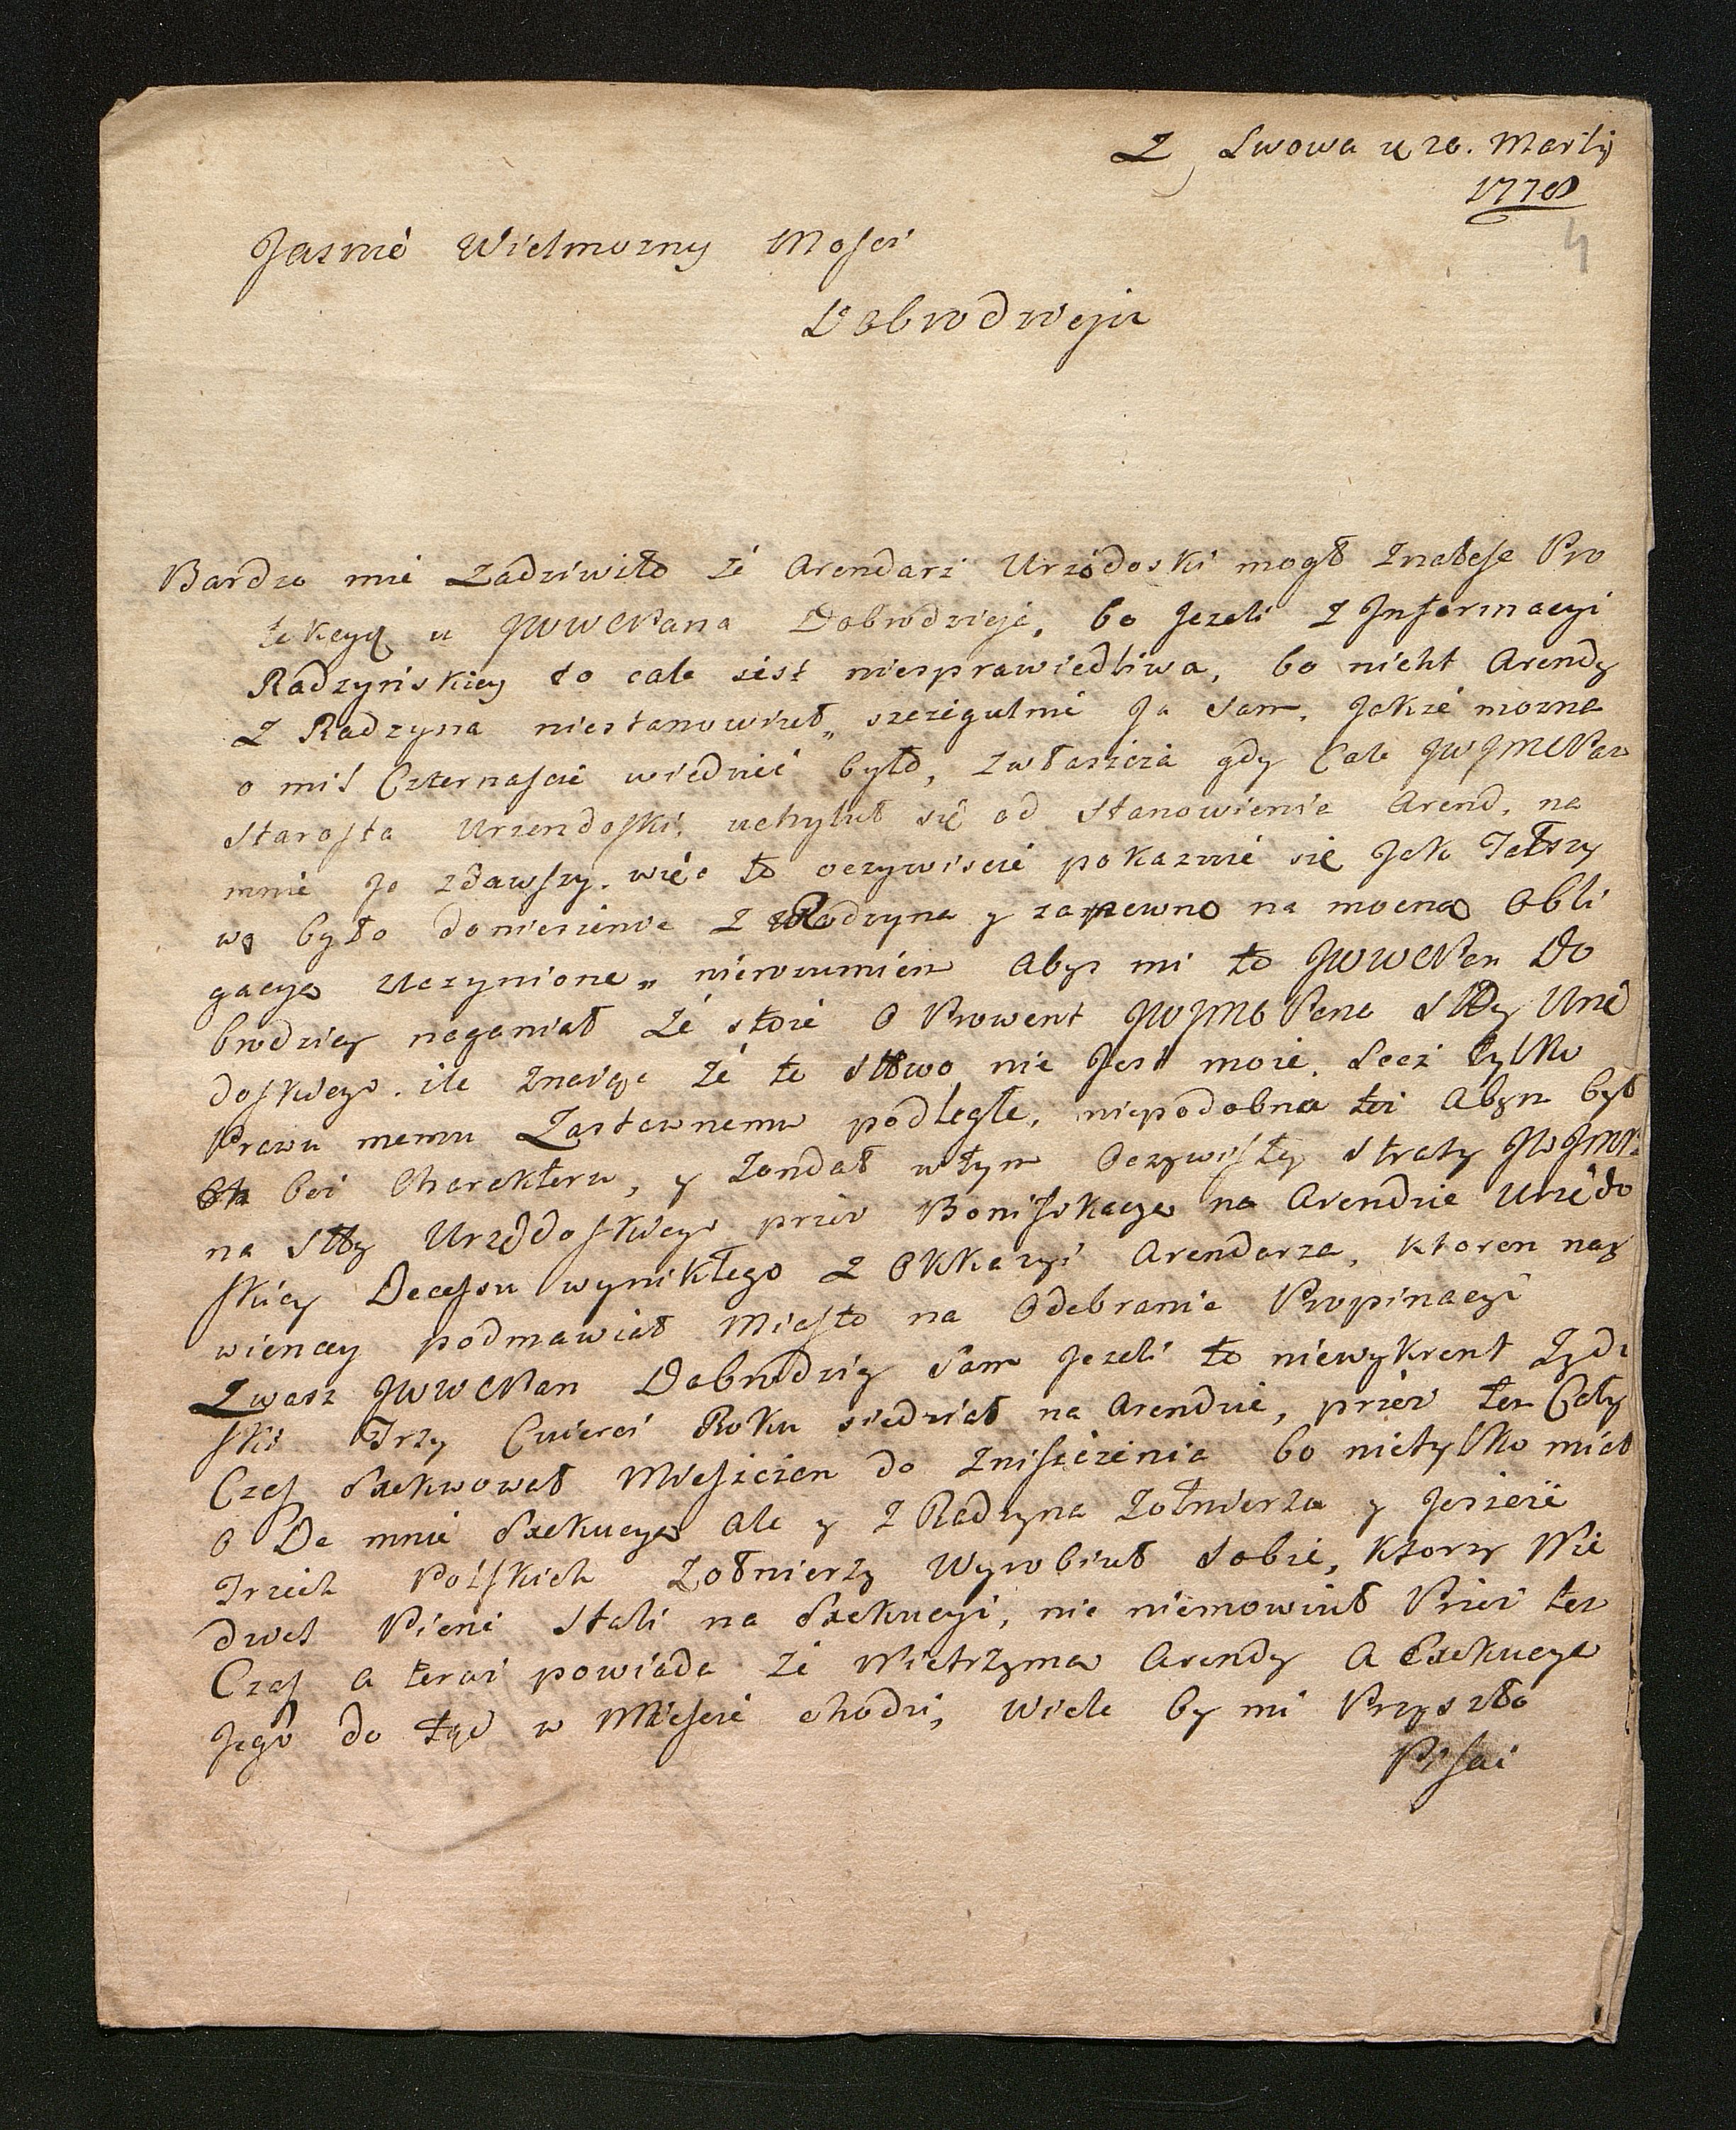 Z Lwowa d 20. Martij
1778
4
Jasnie Wielmozny Mosci
Dobrodzieju
Bardzo mie Zadziwiło że Arendarz Urzędoski mogł Znalesc Pro
tekcyą u JWWCPana Dobrodzieja, bo Jezeli z Jnformacyi
Radzyńskiey to cale jest niesprawiedliwa, bo nicht Arendy
Z Radzyna niestanowieuł„ szczegulnie Ja Sam, Jakże mozna
o mil Czternascie wiedzieć było, zwłaszcza gdy Cale JWJMCPan
Starosta Urzendoski, uchyluł się od Stanowienia Arend, na
mnie Je zdawszy. więc to oczywiscie pokazuie się Jak Fałszy
we było doniesienie z Radzyna y zapewno na mocną Obli
gacyą uczynione„ nierozumiem Abyś mi to JWWCPan Do
brodziey naganiał że stoie o Prowent JWJMCPana Stty Urzę
doskiego. ile znaiąc że te Sttwo nie Jest moie. Lecz tylko
Prawu memu Zastawnemu podległe, niepodobna też Abym był
bez Charakteru, y żondał wtym Oczywistey Straty JWJMP:
na Stty Urzędoskiego przez Bonifikacyą na Arendzie Urzędo
skiey Decessu wynikłego z Okkazyi Arendarza, ktoren nay
wiencey podmawiał Miasto na Odebranie Propinacyi
Zwasz JWWCPan Dobrodziey Sam Jezeli to niewykrent Zydo
ski Trzy Cwierci Roku siedział na Arendzie, przez ten Cały
Czas Exekwował Mieszczan do Zniszczenia bo nietylko miał
O De mnie Exekucyą ale y z Radzyna Zołnierza y Jeszcze
Trzech Polskich Zołnierzy Wyrobieuł Sobie, ktorzy Nie
dwch Pieni Stali na Exekucyi, nic niemowieuł Przez ten
Czas a teraz powiada że Nietrzyma Arendy A Exekucya
Jego do tąd w Miescie chodzi, Wiele by mi Przyszło
Pisać